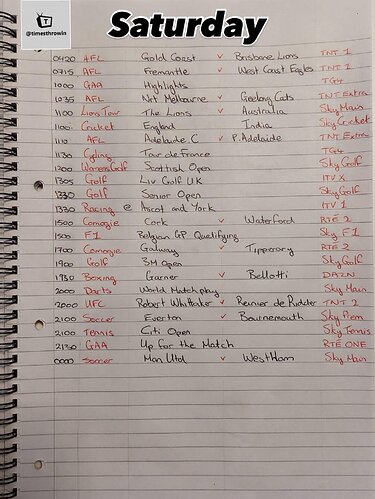 Saturday
@timesthrowin
0420 AFL Gold Coast v Brisbane Lions TNT 1
0715 AFL Fremantle v West Coast Eagles TNT 1
1000 GAA Highlights TG4
1035 AFL Nrt Melbourne v Geelong Cats TNT Extra
1100 Lions Tour The Lions v Australia Sky Main
1100 Cricket England v India Sky Cricket
1110 AFL Adelaide C v P.Adelaide TNT Extra
1130 Cycling Tour de France TG4
1200 Womens Golf Scottish Open Sky Golf
1305 Golf Liv Golf UK ITV X
1330 Golf Senior Open Sky Golf
1330 Racing @ Ascot and York ITV 1
1500 Comogie Cork v Waterford RTE 2
1500 F1 Belgian GP Qualifying Sky F1
1700 Comogie Galway v Tipperary RTE 2
1900 Golf 3M Open Sky Golf
1930 Boxing Garner v Bellotti DAZN
2000 Darts World Matchplay Sky Main
2000 UFC Robert Whittaker v Reinier de Ridder TNT 2
2100 Soccer Everton v Bournemouth Sky Prem
2100 Tennis Citi Open Sky Tennis
2130 GAA Up for the Match RTE ONE
0000 Soccer Man Utd v West Ham Sky Main